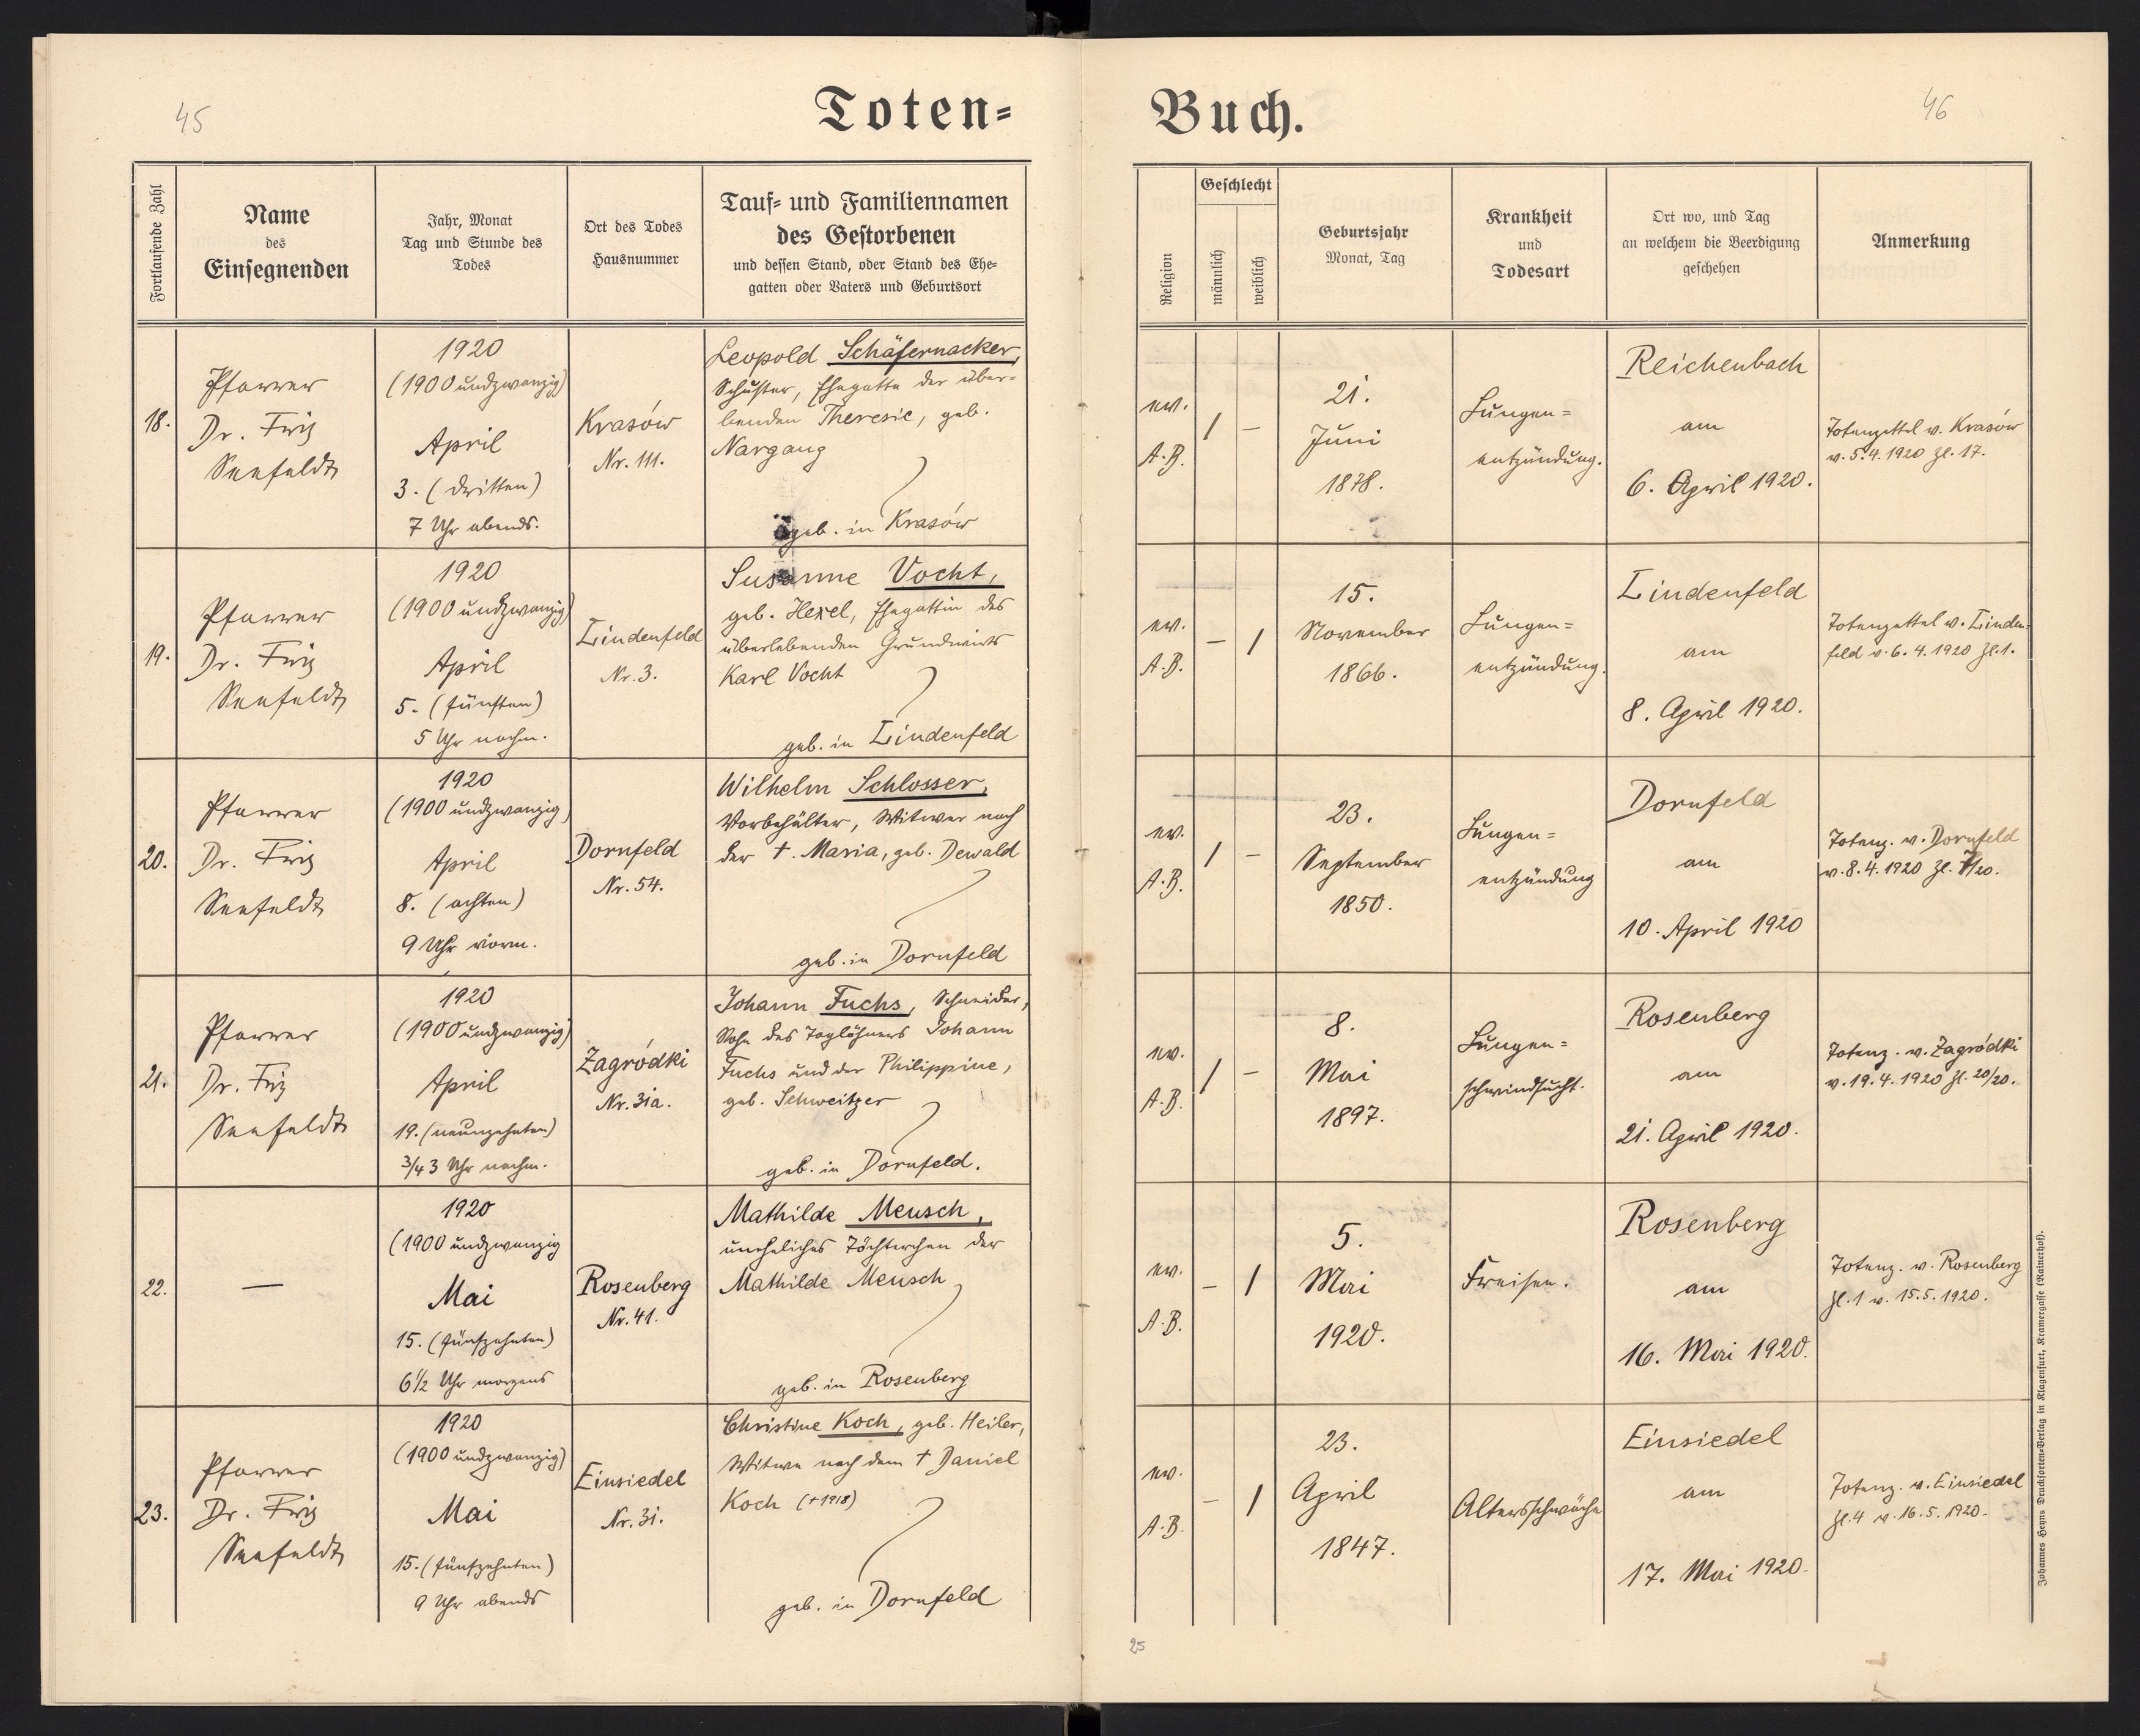 45
Toten=
Fortlaufende Zahl
Name
des
Einsegnenden
Jahr, Monat
Tag und Stunde des
Todes
Ort des Todes
Hausnummer
Tauf= und Familiennamen
des Gestorbenen
und dessen Stand, oder Stand des Ehe=
gatten oder Vaters und Geburtsort
18.
Pfarrer
Dr. Fritz
Seefeldt
1920
(1900 undzwanzig)
April
3. (dritten)
7 Uhr abends.
Krasów
Nr. 111.
Leopold Schäfernacker,
Schuster, Ehegatte der über=
benden Theresie, geb.
Nargang
geb. in Krasów
19.
Pfarrer
Dr. Fritz
Seefeldt
1920
(1900 undzwanzig)
April
5. (fünften)
5 Uhr nachm.
Lindenfeld
Nr. 3.
Susanne Vocht,
geb. Hexel, Ehegattin des
überlebenden Grundwirts
Karl Vocht
geb. in Lindenfeld
20.
Pfarrer
Dr. Fritz
Seefeldt
1920
(1900 undzwanzig)
April
8. (achten)
9 Uhr vorm.
Dornfeld
Nr. 54.
Wilhelm Schlosser,
Vorbehälter, Witwer nach
der †. Maria, geb. Dewald
geb. in Dornfeld
21.
Pfarrer
Dr. Fritz
Seefeldt
1920
(1900 undzwanzig)
April
19. (neunzehnten)
3/4 3 Uhr nachm.
Zagródki
Nr. 31a.
Johann Fuchs, Schneider,
Sohn des Taglöhners Johann
Fuchs und der Philippine,
geb. Schweitzer
geb. in Dornfeld.
22.
—
1920
(1900 undzwanzig
Mai
15. (fünfzehnten)
6 1/2 Uhr morgens
Rosenberg
Nr. 41.
Mathilde Meusch,
uneheliches Töchterchen der
Mathilde Meusch
geb. in Rosenberg
23.
Pfarrer
Dr. Fritz
Seefeldt
1920
(1900 undzwanzig)
Mai
15. (fünfzehnten)
9 Uhr abends
Einsiedel
Nr. 31.
Christine Koch, geb. Heiler,
Witwe nach dem † Daniel
Koch (†1918)
geb. in Dornfeld
Buch.
46
Religion
Geschlecht
männlich
weiblich
Geburtsjahr
Monat, Tag
Krankheit
und
Todesart
Ort wo, und Tag
an welchem die Beerdigung
geschehen
Anmerkung
ev.
A.B.
/ –
21.
Juni
1878.
Lungen=
entzündung.
Reichenbach
am
6. April 1920.
Totenzettel v. Krasów
v. 5.4.1920 Zl. 17.
ev.
A.B.
– /
15.
November
1866.
Lungen=
entzündung.
Lindenfeld
am
8. April 1920.
Totenzettel v. Linden=
feld v. 6.4.1920 Zl. 1.
ev.
A.B.
/ –
23.
September
1850.
Lungen=
entzündung
Dornfeld
am
10. April 1920
Totenz. v. Dornfeld
v. 8.4.1920 Zl. 7/20.
ev.
A.B.
/ –
8.
Mai
1897.
Lungen=
schwindsucht.
Rosenberg
am
21. April 1920.
Totenz. v. Zagródki
v. 19.4.1920 Zl. 20/20.
ev.
A.B.
– /
5.
Mai
1920.
Freisen.
Rosenberg
am
16. Mai 1920.
Totenz. v. Rosenberg
Zl. 1 v. 15.5.1920.
ev.
A.B.
– /
23.
April
1847.
Altersschwäche
Einsiedel
am
17. Mai 1920.
Totenz. v. Einsiedel
Zl. 4 v. 16.5.1920.
25
Johannes Heyns Drucksorten=Verlag in Klagenfurt, Kramergasse (Rainerhof).